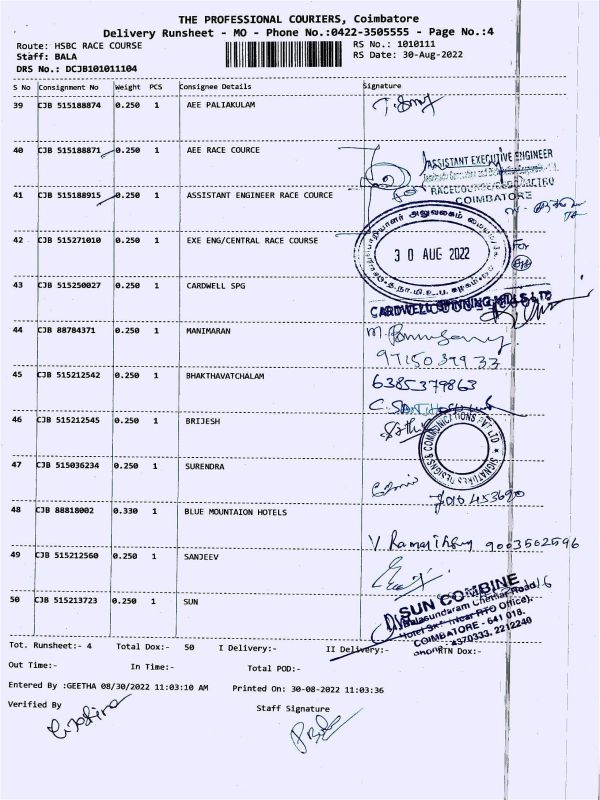 THE PROFESSIONAL COURIERS, Coimbatore
Delivery Runsheet - MO - Phone No.:0422-3505555 - Page No.:4
Route: HSBC RACE COURSE
RS No.: 1010111
Staff: BALA
RS Date: 30-Aug-2022
DRS No.: DCJB101011104
S No Consignment No Weight PCS Consignee Details Signature
39 CJB 515188874 0.250 1 AEE PALIAKULAM
40 CJB 515188871 0.250 1 AEE RACE COURCE
ASSISTANT EXECUTIVE ENGINEER
41 CJB 515188915 0.250 1 ASSISTANT ENGINEER RACE COURCE
COIMBATORE
42 CJB 515271010 0.250 1 EXE ENG/CENTRAL RACE COURSE
30 AUG 2022
43 CJB 515250027 0.250 1 CARDWELL SPG
CARDWELL SPINNING MILLS LTD
44 CJB 88784371 0.250 1 MANIMARAN
9715037933
45 CJB 515212542 0.250 1 BHAKTHAVATCHALAM
6385379863
46 CJB 515212545 0.250 1 BRIJESH
SIGNATURES DESIGNS & COMMUNICATIONS PVT LTD
47 CJB 515036234 0.250 1 SURENDRA
48 CJB 88818002 0.330 1 BLUE MOUNTAION HOTELS
9003502596
49 CJB 515212560 0.250 1 SANJEEV
50 CJB 515213723 0.250 1 SUN
SUN COMBINE
COIMBATORE - 641 018.
Phone: 4370333, 2212240
Tot. Runsheet:- 4 Total Dox:- 50 I Delivery:- II Delivery:- RTN Dox:-
Out Time:- In Time:- Total POD:-
Entered By :GEETHA 08/30/2022 11:03:10 AM Printed On: 30-08-2022 11:03:36
Verified By
Staff Signature